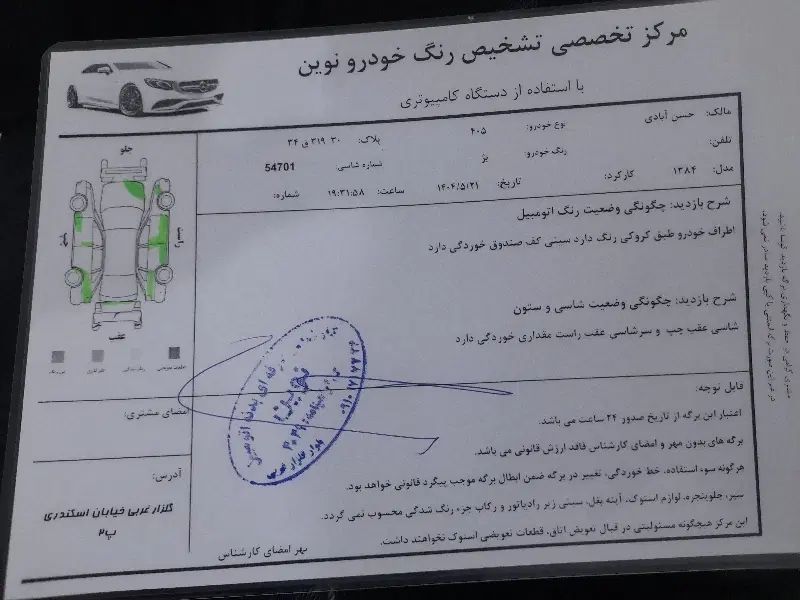 مرکز تخصصی تشخیص رنگ خودرو نوین
با استفاده از دستگاه کامپیوتری
مالک: حسن آبادی
نوع خودرو: ۴۰۵
پلاک: ۳۰ ۳۱۹ ق ۳۴
تلفن:
رنگ خودرو: بژ
شماره شاسی: 54701
مدل: ۱۳۸۴
کارکرد:
تاریخ: ۱۴۰۴/۵/۲۱
ساعت: ۱۹:۳۱:۵۸
شماره:
جلو
راست
چپ
عقب
شرح بازدید: چگونگی وضعیت رنگ اتومبیل
اطراف خودرو طبق کروکی رنگ دارد سینی کف صندوق خوردگی دارد
شرح بازدید: چگونگی وضعیت شاسی و ستون
شاسی عقب چپ و سرشاسی عقب راست مقداری خوردگی دارد
قابل توجه:
اعتبار این برگه از تاریخ صدور ۲۴ ساعت می باشد.
برگه های بدون مهر و امضای کارشناس فاقد ارزش قانونی می باشد.
هرگونه سوء استفاده، خط خوردگی، تغییر در برگه ضمن ابطال برگه موجب پیگرد قانونی خواهد بود.
سپر، جلوپنجره، لوازم استوک، آینه بغل، سینی زیر رادیاتور و رکاب جزء رنگ شدگی محسوب نمی گردد.
این مرکز هیچگونه مسئولیتی در قبال تعویض اتاق، قطعات تعویضی استوک نخواهند داشت.
امضای مشتری:
آدرس:
گلزار غربی خیابان اسکندری
پ۲
مهر امضای کارشناس